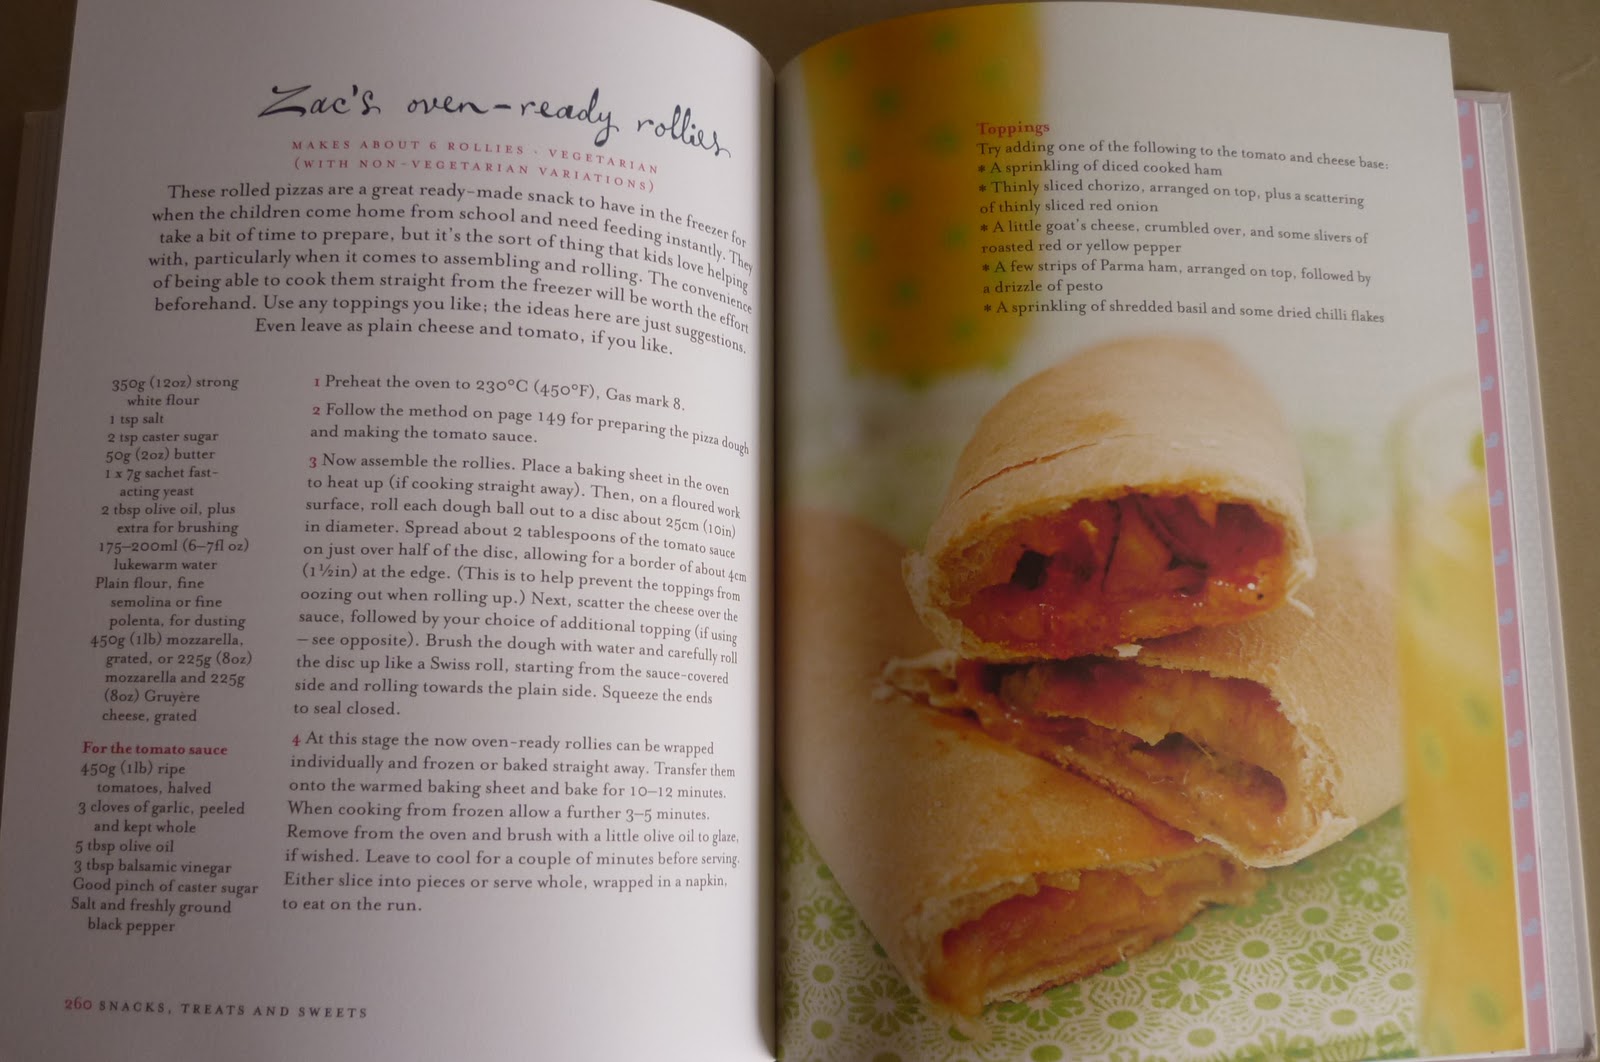 Zac's oven-ready rollies
MAKES ABOUT 6 ROLLIES · VEGETARIAN
(WITH NON-VEGETARIAN VARIATIONS)
These rolled pizzas are a great ready-made snack to have in the freezer for
when the children come home from school and need feeding instantly. They
take a bit of time to prepare, but it's the sort of thing that kids love helping
with, particularly when it comes to assembling and rolling. The convenience
of being able to cook them straight from the freezer will be worth the effort
beforehand. Use any toppings you like; the ideas here are just suggestions.
Even leave as plain cheese and tomato, if you like.
350g (12oz) strong
white flour
1 tsp salt
2 tsp caster sugar
50g (2oz) butter
1 x 7g sachet fast-
acting yeast
2 tbsp olive oil, plus
extra for brushing
175–200ml (6–7fl oz)
lukewarm water
Plain flour, fine
semolina or fine
polenta, for dusting
450g (1lb) mozzarella,
grated, or 225g (8oz)
mozzarella and 225g
(8oz) Gruyère
cheese, grated
For the tomato sauce
450g (1lb) ripe
tomatoes, halved
3 cloves of garlic, peeled
and kept whole
5 tbsp olive oil
3 tbsp balsamic vinegar
Good pinch of caster sugar
Salt and freshly ground
black pepper
1 Preheat the oven to 230°C (450°F), Gas mark 8.
2 Follow the method on page 149 for preparing the pizza dough
and making the tomato sauce.
3 Now assemble the rollies. Place a baking sheet in the oven
to heat up (if cooking straight away). Then, on a floured work
surface, roll each dough ball out to a disc about 25cm (10in)
in diameter. Spread about 2 tablespoons of the tomato sauce
on just over half of the disc, allowing for a border of about 4cm
(1½in) at the edge. (This is to help prevent the toppings from
oozing out when rolling up.) Next, scatter the cheese over the
sauce, followed by your choice of additional topping (if using
– see opposite). Brush the dough with water and carefully roll
the disc up like a Swiss roll, starting from the sauce-covered
side and rolling towards the plain side. Squeeze the ends
to seal closed.
4 At this stage the now oven-ready rollies can be wrapped
individually and frozen or baked straight away. Transfer them
onto the warmed baking sheet and bake for 10–12 minutes.
When cooking from frozen allow a further 3–5 minutes.
Remove from the oven and brush with a little olive oil to glaze,
if wished. Leave to cool for a couple of minutes before serving.
Either slice into pieces or serve whole, wrapped in a napkin,
to eat on the run.
260 SNACKS, TREATS AND SWEETS
Toppings
Try adding one of the following to the tomato and cheese base:
* A sprinkling of diced cooked ham
* Thinly sliced chorizo, arranged on top, plus a scattering
of thinly sliced red onion
* A little goat's cheese, crumbled over, and some slivers of
roasted red or yellow pepper
* A few strips of Parma ham, arranged on top, followed by
a drizzle of pesto
* A sprinkling of shredded basil and some dried chilli flakes